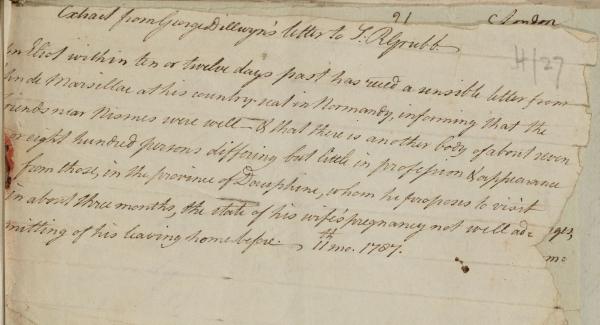 91
London
Extract from George Dillwyn's letter to S. R Grubb.
H/27
Eliot within ten or twelve days past has recd a sensible letter from
de Marsillac at his country seat in Normandy, informing that the
friends near Nismes were well — & that there is another body of about seven
or eight hundred persons differing but little in profession & appearance
from those, in the province of Dauphine, whom he proposes to visit
in about three months, the state of his wife's pregnancy not well ad=
mitting of his leaving home before. 11th mo. 1787.
mo